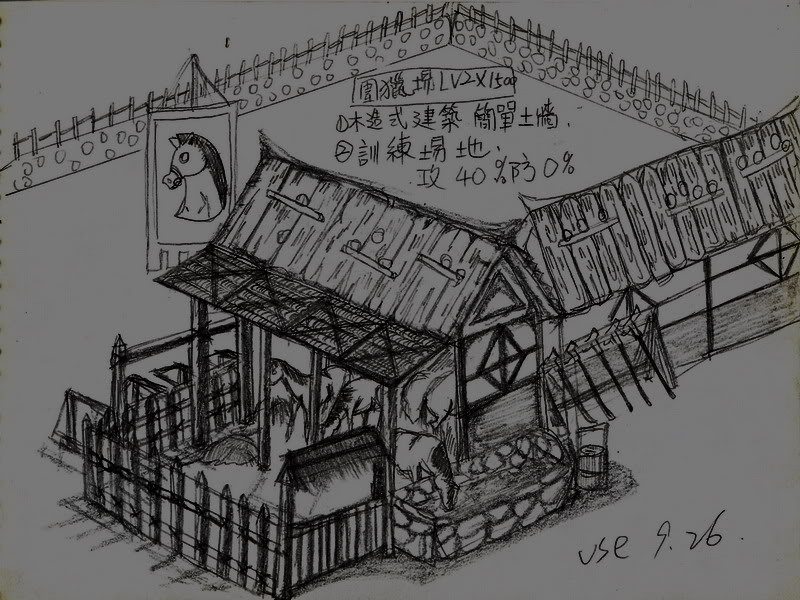 圍獵場LV2X1500
①木造式建築 簡單土牆.
②訓練場地.
攻40%防0%
use 9.26.